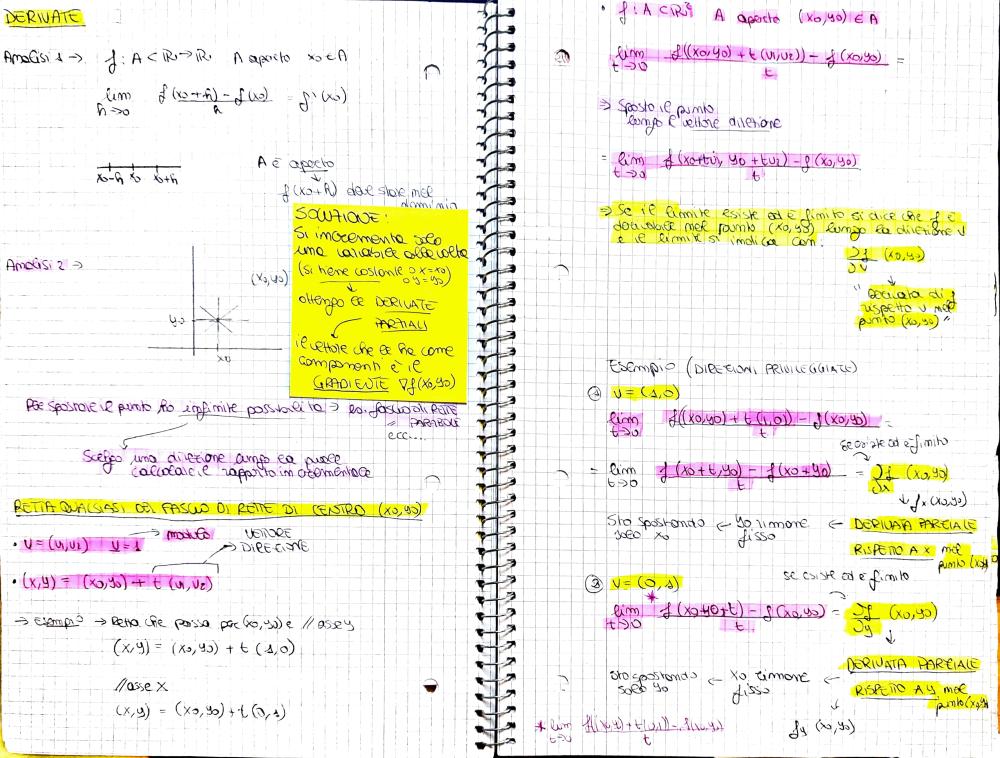 DERIVATE
Analisi 1 → f: A ⊂ ℝ → ℝ A aperto x0 ∈ A
lim h→0 f(x0+h) - f(x0) / h = f'(x0)
x0-h x0 x0+h
A è aperto
↓
f(x0+h) deve stare nel dominio
SOLUZIONE:
Si incrementa solo
una variabile alla volta
(si tiene costante o x=x0
o y=y0)
ottengo le DERIVATE
PARZIALI
il vettore che le ha come
componenti è il
GRADIENTE ∇f(x0,y0)
Analisi 2 →
(x0,y0)
y0
x0
Per spostare il punto ho infinite possibilità → es. fascio di RETTE
" PARABOLE
ecc....
Scelgo una direzione lungo la quale
calcolare il rapporto incrementale
RETTA QUALSIASI DEL FASCIO DI RETTE DI CENTRO (x0,y0)
• v=(v1,v2) v=1 → modulo
VETTORE
DIREZIONE
• (x,y) = (x0,y0) + t (v1,v2)
→ esempio → Retta che passa per (x0,y0) e // asse y
(x,y) = (x0,y0) + t (1,0)
// asse x
(x,y) = (x0,y0) + t(0,1)
• f: A ⊂ ℝ² A aperto (x0,y0) ∈ A
lim t→0 f((x0,y0) + t(v1,v2)) - f(x0,y0) / t =
⇒ Sposto il punto
lungo il vettore direzione
= lim t→0 f(x0+tv1, y0+tv2) - f(x0,y0) / t
⇒ Se il limite esiste ed è finito si dice che f è
derivabile nel punto (x0,y0) lungo la direzione v
e il limite si indica con:
∂f/∂v (x0,y0)
↓
" derivata di f
rispetto v nel
punto (x0,y0) "
ESEMPIO (DIREZIONI PRIVILEGGIATE)
① v = (1,0)
lim t→0 f((x0,y0) + t(1,0)) - f(x0,y0) / t =
se esiste ed è finito
= lim t→0 f(x0+t,y0) - f(x0+y0) / t = ∂f/∂x (x0,y0)
↓ fx(x0,y0)
Sto spostando solo x0 ← y0 rimane fisso ← DERIVATA PARZIALE
RISPETTO A X nel punto (x0,y0)
② v = (0,1)
se esiste ed è finito
*
lim t→0 f(x0,y0+t) - f(x0,y0) / t = ∂f/∂y (x0,y0)
↓
Sto spostando solo y0 ← x0 rimane fisso ← DERIVATA PARZIALE
RISPETTO A Y nel punto (x0,y0)
↓
fy (x0,y0)
* lim t→0 f((x0,y0) + t(0,1)) - f(x0,y0) / t